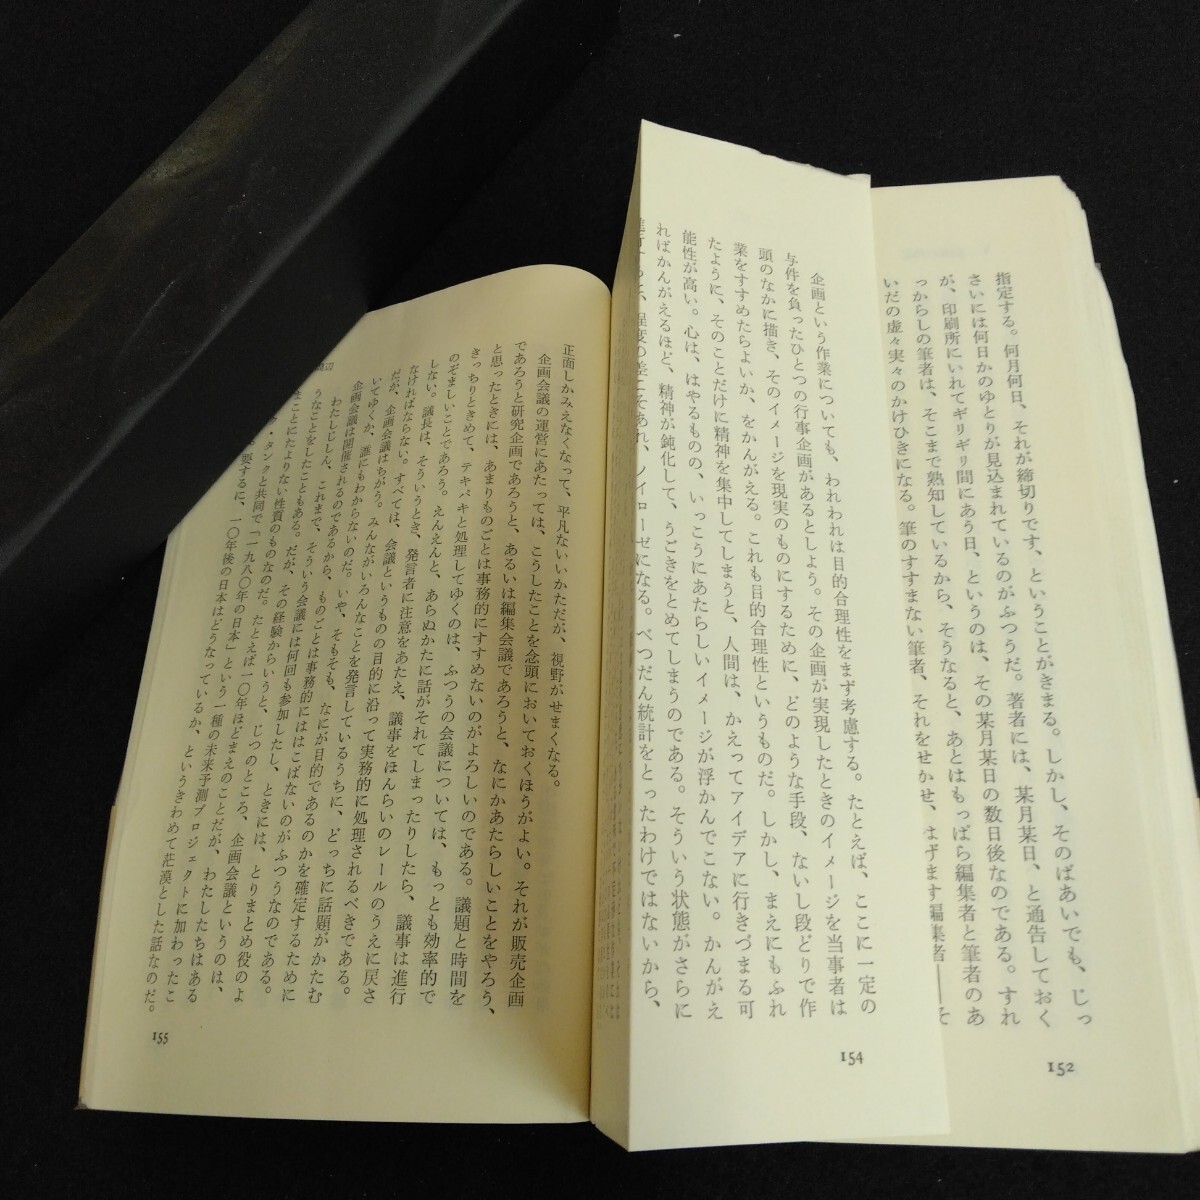 指定する。何月何日、それが締切りです、ということがきまる。しかし、そのばあいでも、じっ
さいには何日かのゆとりが見込まれているのがふつうだ。著者には、某月某日、と通告しておく
が、印刷所にいれてギリギリ間にあう日、というのは、その某月某日の数日後なのである。すれ
っからしの筆者は、そこまで熟知しているから、そうなると、あとはもっぱら編集者と筆者のあ
いだの虚々実々のかけひきになる。筆のすすまない筆者、それをせかせ、はげます編集者――そ
152
企画という作業についても、われわれは目的合理性をまず考慮する。たとえば、ここに一定の
与件を負ったひとつの行事企画があるとしよう。その企画が実現したときのイメージを当事者は
頭のなかに描き、そのイメージを現実のものにするために、どのような手段、ないし段どりで作
業をすすめたらよいか、をかんがえる。これも目的合理性というものだ。しかし、まえにもふれ
たように、そのことだけに精神を集中してしまうと、人間は、かえってアイデアに行きづまる可
能性が高い。心は、はやるものの、いっこうにあたらしいイメージが浮かんでこない。かんがえ
ればかんがえるほど、精神が鈍化して、うごきをとめてしまうのである。そういう状態がさらに
程度の差こそあれ、ノイローゼになる。べつだん統計をとったわけではないから、
154
正面しかみえなくなって、平凡ないいかただが、視野がせまくなる。
企画会議の運営にあたっては、こうしたことを念頭においておくほうがよい。それが販売企画
であろうと研究企画であろうと、あるいは編集会議であろうと、なにかあたらしいことをやろう、
と思ったときには、あまりものごとは事務的にすすめないのがよろしいのである。議題と時間を
きっちりときめて、テキパキと処理してゆくのは、ふつうの会議については、もっとも効率的で
のぞましいことであろう。えんえんと、あらぬかたに話がそれてしまったりしたら、議事は進行
しない。議長は、そういうとき、発言者に注意をあたえ、議事をほんらいのレールのうえに戻さ
なければならない。すべては、会議というものの目的に沿って実務的に処理されるべきである。
だが、企画会議はちがう。みんながいろんなことを発言しているうちに、どっちに話題がかたむ
いてゆくか、誰にもわからないのだ。いや、そもそも、なにが目的であるのかを確定するために
企画会議は開催されるのであるから、ものごとは事務的にははこばないのがふつうなのである。
わたしじしん、これまで、そういう会議には何回も参加したし、ときには、とりまとめ役のよ
うなことをしたこともある。だが、その経験からいうと、じつのところ、企画会議というのは、
まことにたよりない性質のものなのだ。たとえば一〇年ほどまえのことだが、わたしたちはある
・タンクと共同で「一九八〇年の日本」という一種の未来予測プロジェクトに加わったこ
要するに、一〇年後の日本はどうなっているか、というきわめて茫漠とした話なのだ。
155